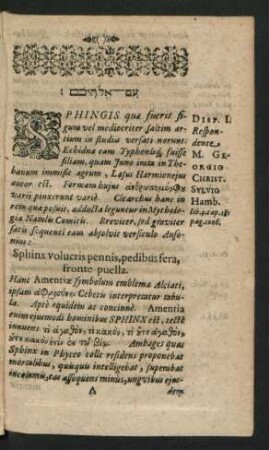 עם אלהים:
SPHINGIS qua fuerit fi-
gura vel mediocriter saltim ar-
tium in studiis versati norunt.
Echidna eam Typhonisq; fuisse
filiam, quam Juno irata in The-
banum immisit agrum, Lasus Harmioneus
autor est. Formam hujus
varii pinxerunt varie. Clearchus hanc in
rem quapropuit, adducta leguntur in Mytholo-
gia Natalis Comitis. Breviter, sed graviter
satis sequenti eam absolvit versiculo Auso-
nius:
Sphinx volucris pennis, pedibus fera,
fronte puella.
Hanc Amentiæ symbolum emblema Alciati,
ipsam ἀφροσύνην Cebetis interpretatur tabu-
la. Aptè equidem ac concinnè. Amentia
enim ejusmodi hominibus SPHINX est, tectè
innuens τί ἀγαθὸν, τί κακὸν, τί ὔτε ἀγαθὸν,
ὔτε κακὸν ἐστὶν ἐν τῷ βίῳ. Ambages quas
Sphinx in Phyceo colle residens proponebat
mortalibus, quisquis intelligebat, superabat
incolumis, eas assequens minus, ungvibus ejus-
A dem
DISP. I.
Respon-
dente
M. GE-
ORGIO
CHRIST.
SYLVIO
Hamb.
lib. 4. cap. 18
pag. 1006.